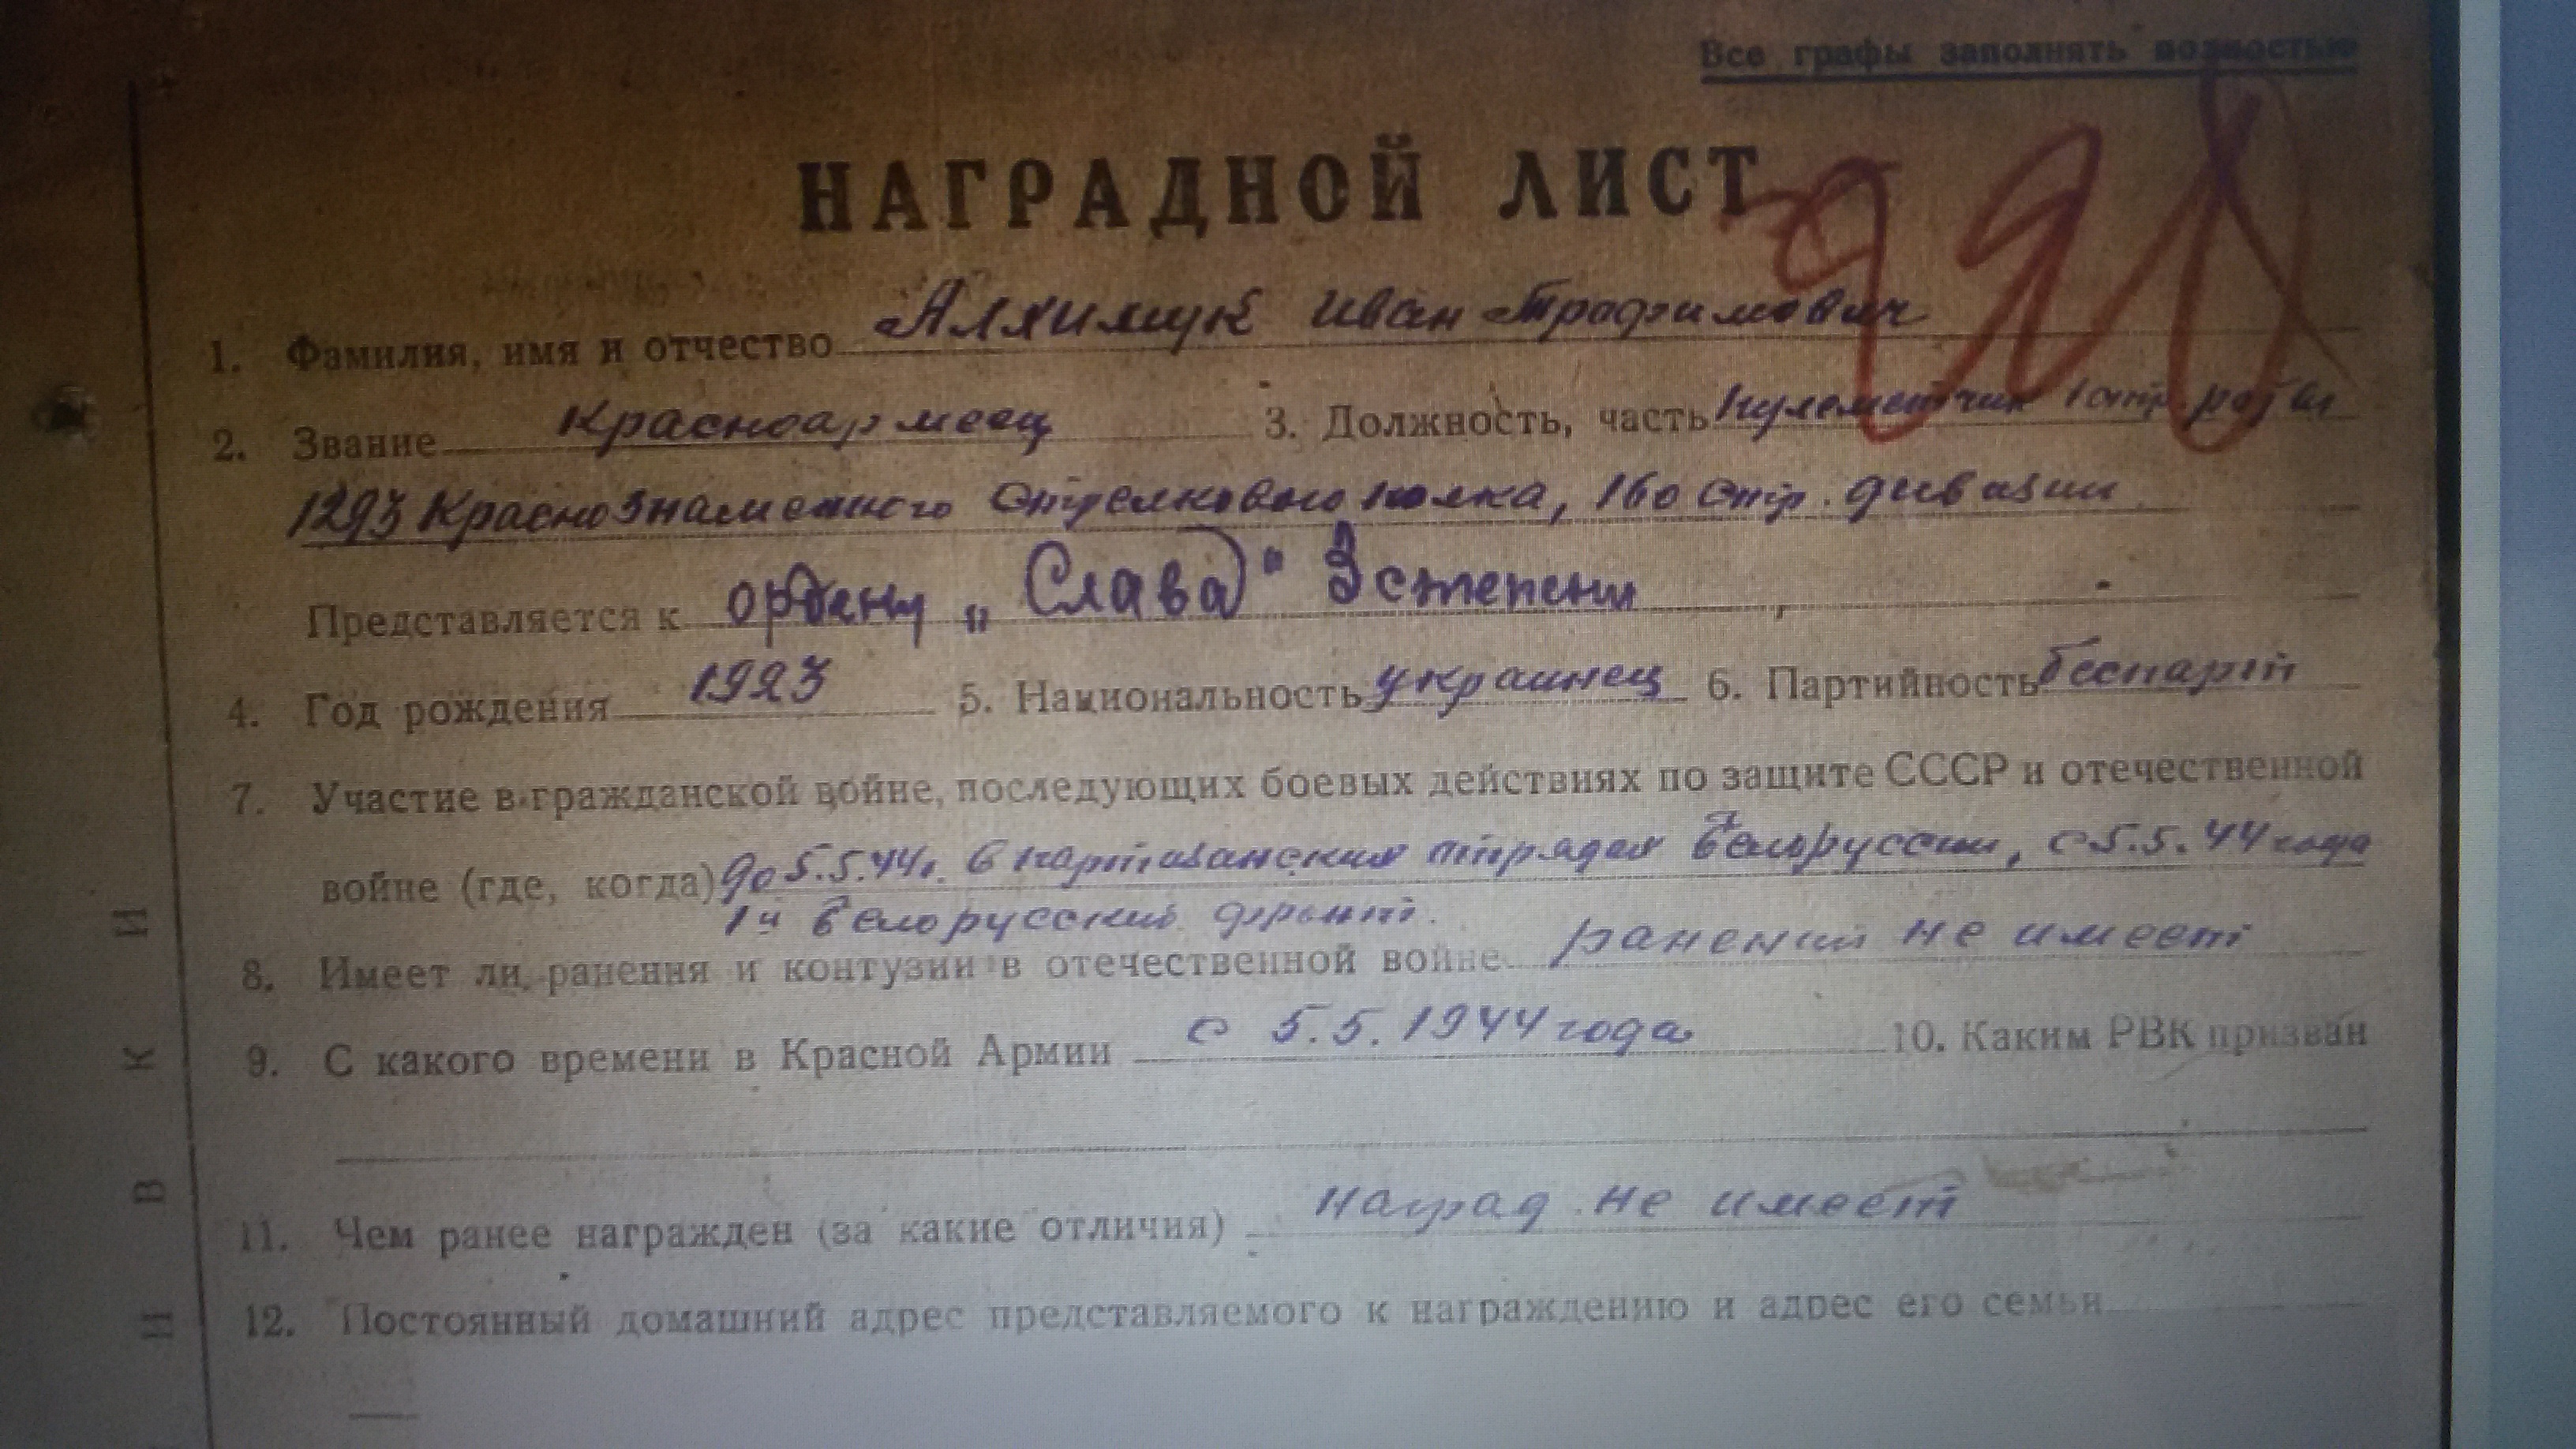 Все графы заполнять полностью
НАГРАДНОЙ ЛИСТ
1. Фамилия, имя и отчество Алхимук Иван Трофимович
2. Звание Красноармеец 3. Должность, часть Пулеметчик 1 стр. роты
1293 Краснознаменного Стрелкового полка, 160 Стр. дивизии
Представляется к ордену „Слава" 3 степени
4. Год рождения 1923 5. Национальность украинец 6. Партийность беспарт
7. Участие в гражданской войне, последующих боевых действиях по защите СССР и отечественной
войне (где, когда) до 5.5.44г. в партизанских отрядах Белоруссии, с 5.5.44 года
1й Белорусский фронт.
8. Имеет ли ранения и контузии в отечественной войне ранений не имеет
9. С какого времени в Красной Армии с 5.5.1944 года 10. Каким РВК призван
11. Чем ранее награжден (за какие отличия) наград не имеет
12. Постоянный домашний адрес представляемого к награждению и адрес его семьи